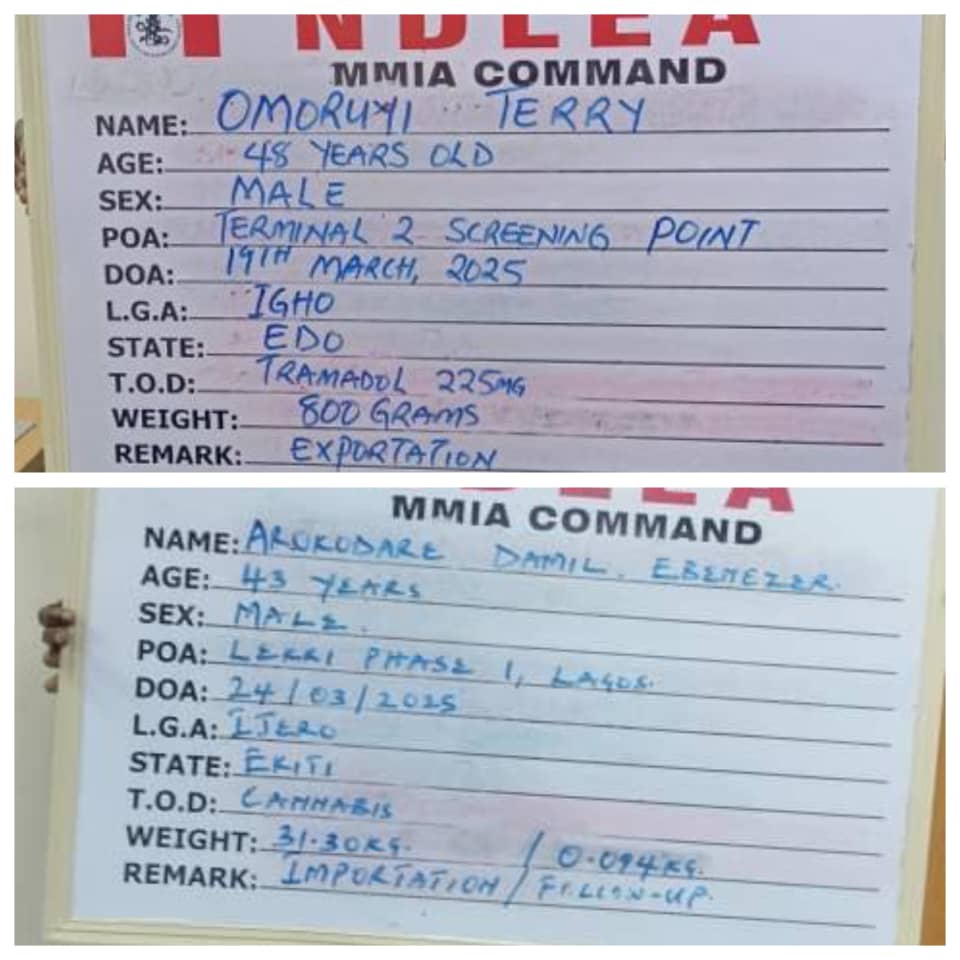 NDLEA
MMIA COMMAND
NAME: OMORUYI TERRY
AGE: 48 YEARS OLD
SEX: MALE
POA: TERMINAL 2 SCREENING POINT
DOA: 19TH MARCH, 2025
L.G.A: IGHO
STATE: EDO
T.O.D: TRAMADOL 225MG
WEIGHT: 800 GRAMS
REMARK: EXPORTATION
NDLEA
MMIA COMMAND
NAME: AROKODARE DAMIL. EBENEZER.
AGE: 43 YEARS
SEX: MALE.
POA: LEKKI PHASE 1, LAGOS.
DOA: 24/03/2025
L.G.A: IJERO
STATE: EKITI
T.O.D: CANNABIS
WEIGHT: 31.30KG. / 0.094KG.
REMARK: IMPORTATION / FOLLOW-UP.